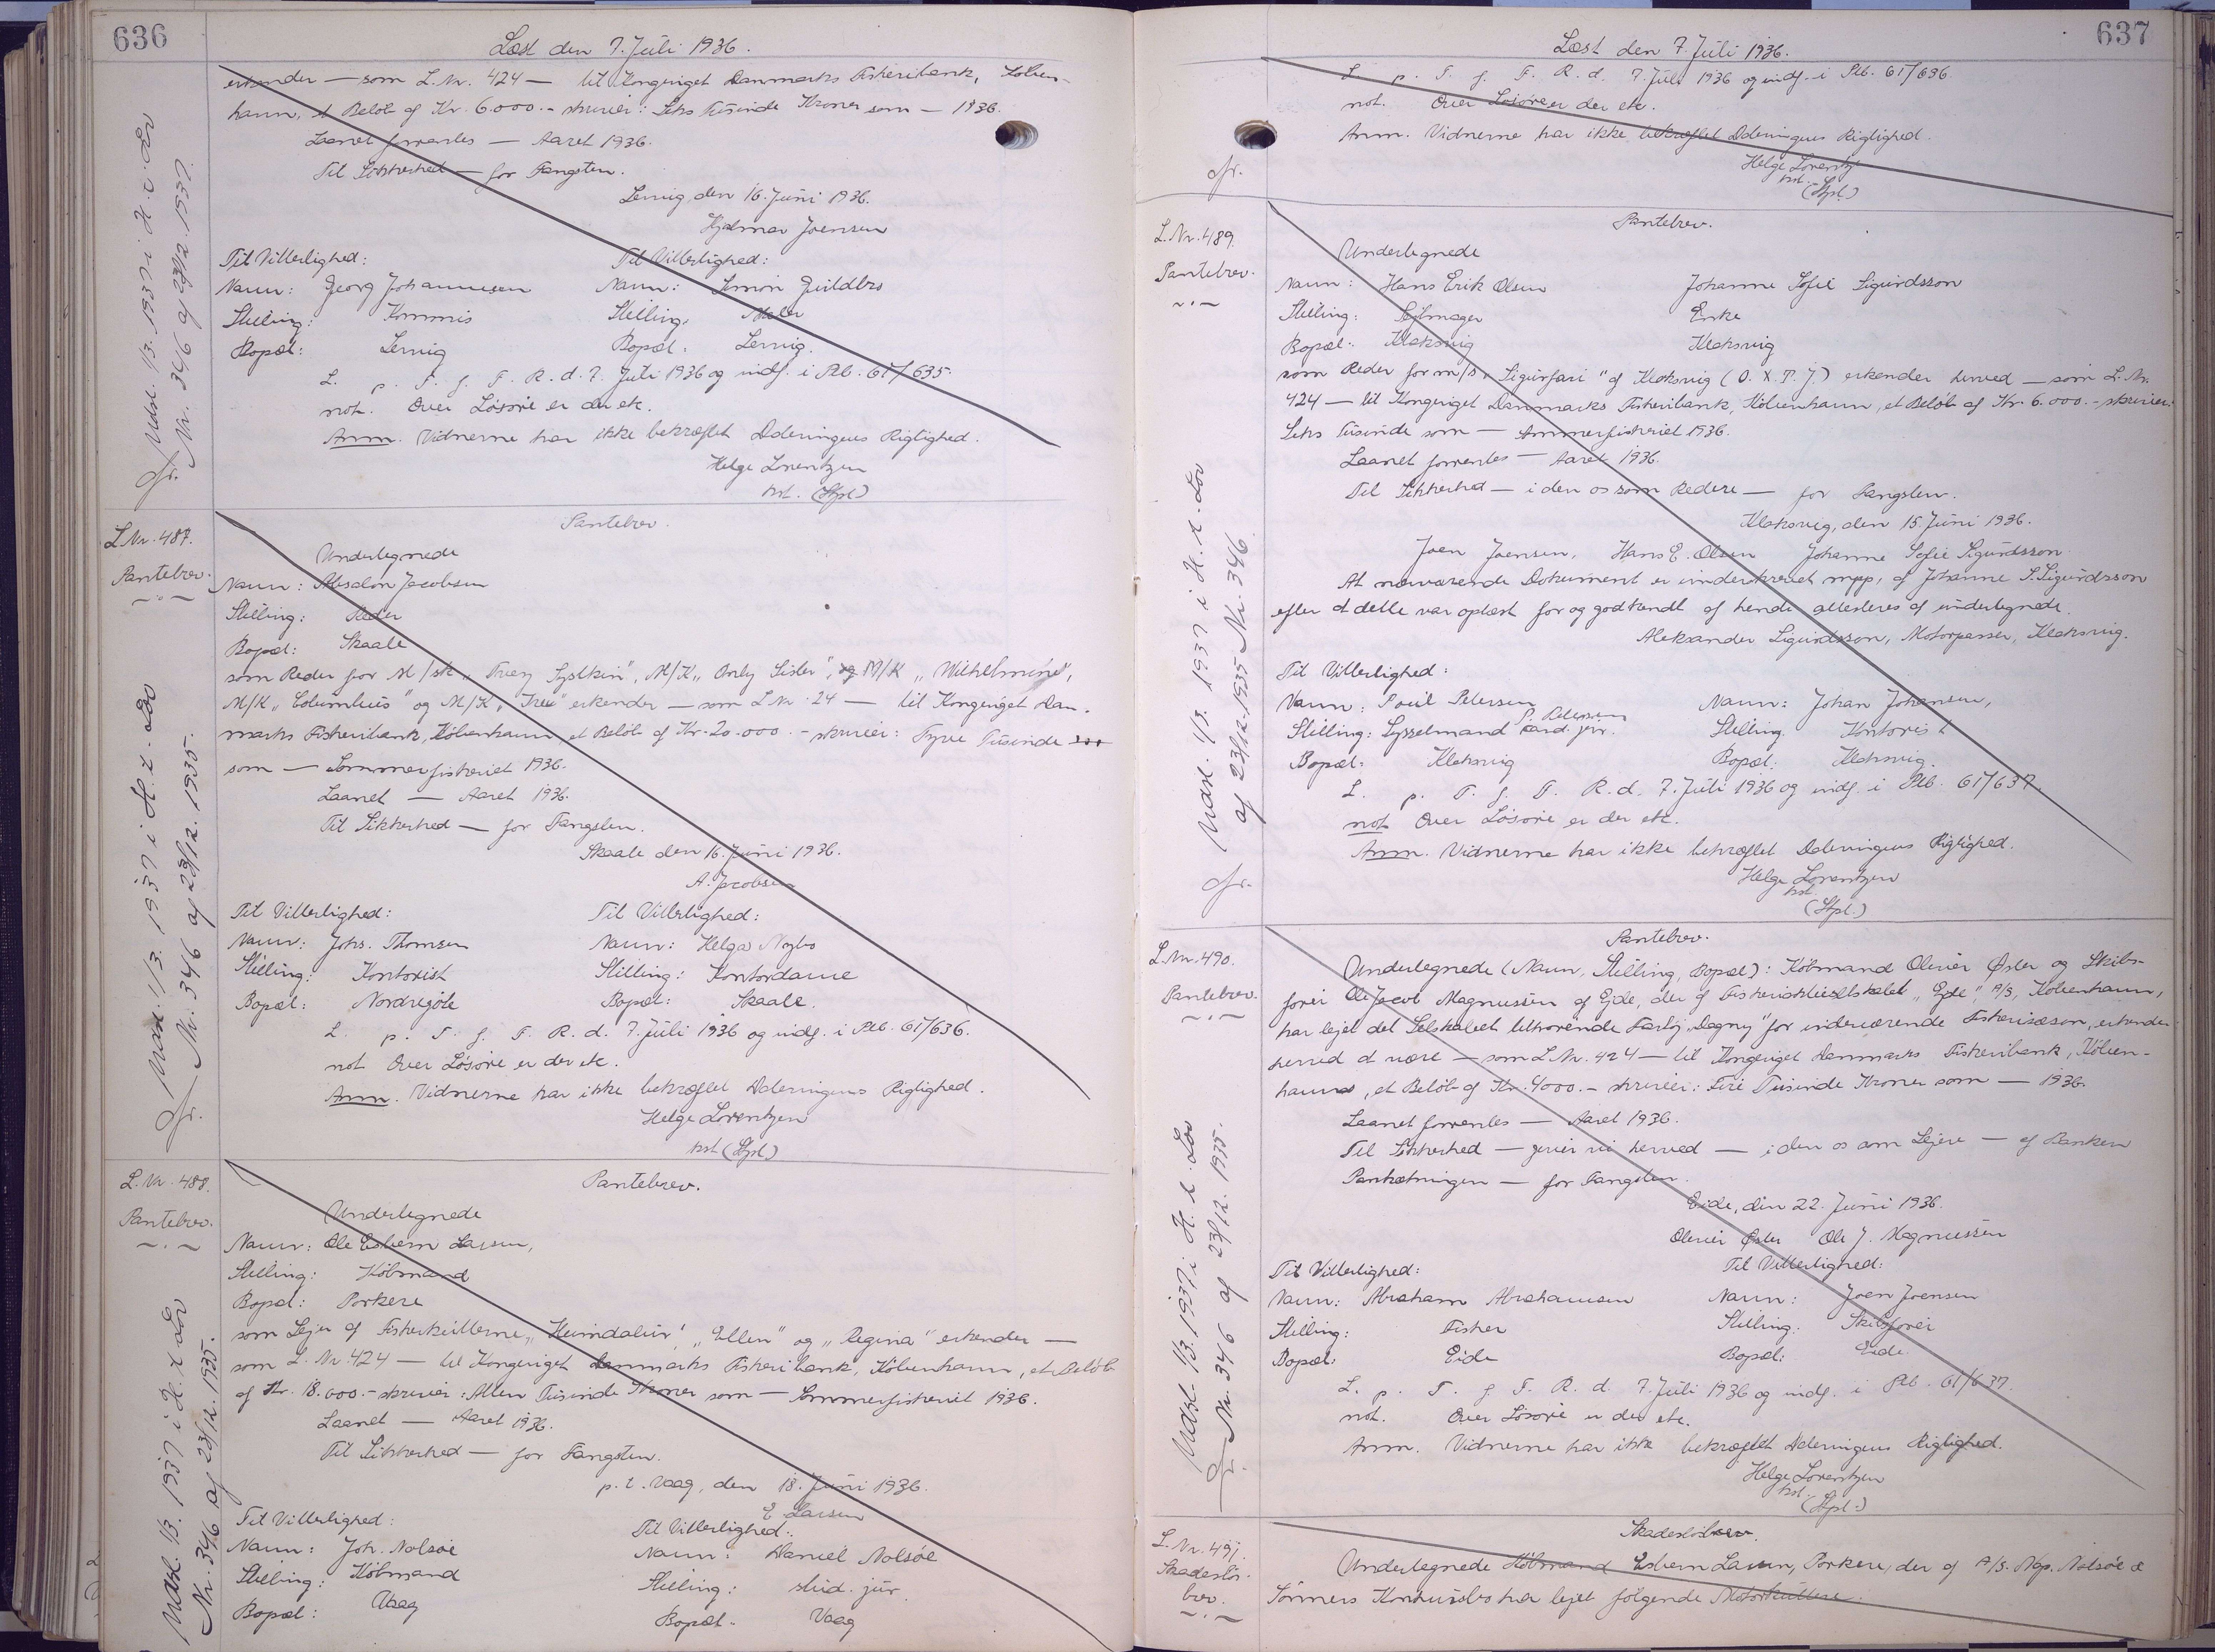 636
Læst den 7. Juli 1936.
erkender — som L. Nr. 424 — til Kongeriget Danmarks Fiskeribank, Köben-
havn, et Beløb af Kr. 6000.- skriver: Seks Tusinde Kroner som — 1936.
Laanet forrentes — Aaret 1936.
Til Sikkerhed — for Fangsten.
Lervig, den 16. Juni 1936.
Hjalmar Joensen
Til Vitterlighed: Til Vitterlighed:
Navn: Georg Johannesen Navn: Simon
Stilling: Kommis Stilling: Maler
Bopæl: Lervig Bopæl: Lervig.
L. p. T. f. F. R. d. 7. Juli 1936 og indf. i Ptb. 61/635.
not. Over Lösöre er der etc.
Anm. Vidnerne har ikke bekræftet Dateringens Rigtighed.
Helge Lorentzen
kst. (Stpl.)
Udsl. 1/3. 1937 i H. t. Lov
Nr. 346 af 23/12 1937.
L. Nr. 487.
Pantebrev.
Pantebrev.
Undertegnede
Navn: Absalon Jacobsen
Stilling: Reder
Bopæl: Skaale
som Reder for M/sk „ Tvey Systkin", M/K „ Only Sister", og M/K „ Wilhelmine",
M/K „ Columbus" og M/K „ " erkender — som L Nr. 24 — til Kongeriget Dan-
marks Fiskeribank, Köbenhavn, et Beløb af Kr. 20.000.- skriver: Tyve Tusinde
som — Sommerfiskeriet 1936.
Laanet — Aaret 1936.
Til Sikkerhed — for Fangsten.
Skaale den 16. Juni 1936.
A. Jacobsen
Til Vitterlighed: Til Vitterlighed:
Navn: Johs. Thomsen Navn: Helga Nybo
Stilling: Kontorist Stilling: Kontordame
Bopæl: Nordregöte Bopæl: Skaale.
L. p. T. f. F. R. d. 7. Juli 1936 og indf. i Ptb. 61/636.
not Over Lösöre er der etc.
Anm. Vidnerne har ikke bekræftet Dateringens Rigtighed.
Helge Lorentzen
kst (Stpl.)
Udsl. 1/3. 1937 i H. t. Lov
Nr. 346 af 23/12. 1935.
L. Nr. 488.
Pantebrev.
Pantebrev.
Undertegnede
Navn: Ole Esbern Larsen,
Stilling: Köbmand
Bopæl: Porkere
som Lejer af Fiskerkutterne „ Heimdalur", „Ellen" og „ Regina" erkender —
som L. Nr. 424 — til Kongeriget Danmarks Fiskeribank, Köbenhavn, et Beløb
af Kr. 18.000.- skriver: Atten Tusinde Kroner som — Sommerfiskeriet 1936.
Laanet — Aaret 1936.
Til Sikkerhed — for Fangsten.
p. t. Vaag, den 18. Juni 1936.
E Larsen
Til Vitterlighed: Til Vitterlighed:
Navn: Joh. Nolsöe Navn: Daniel Nolsöe
Stilling: Köbmand Stilling: stud. jur.
Bopæl: Vaag Bopæl: Vaag
Udsl. 1/3. 1937 i H. t. Lov
Nr. 346 af 23/12. 1935.
637
Læst den 7. Juli 1936.
L. p. T. f. F. R. d. 7. Juli 1936 og indf. i Ptb. 61/636
not. Over Lösöre er der etc.
Anm. Vidnerne har ikke bekræftet Dateringens Rigtighed.
Helge Lorentz
kst.
(Stpl.)
L. Nr. 489.
Pantebrev.
Pantebrev.
Undertegnede
Navn: Hans Erik Olsen Johanne Sofie Sigurdsson
Stilling: Sejlmager Enke
Bopæl: Klaksvig Klaksvig
som Reder for m/s „ Sigurfari" af Klaksvig (O. X. P. J.) erkender herved — som L. Nr.
424 — til Kongeriget Danmarks Fiskeribank, Köbenhavn, et Beløb af Kr. 6.000.- skriver:
Seks Tusinde som — Sommerfiskeriet 1936.
Laanet forrentes — Aaret 1936.
Til Sikkerhed — i den os som Redere — for Fangsten.
Klaksvig, den 15. Juni 1936.
Joen Joensen, Hans E. Olsen Johanne Sofie Sigurdsson.
At nærværende Dokument er underskrevet mpp, af Johanne S. Sigurdsson
efter at dette var oplæst for og godkendt af hende attesteres af undertegnede.
Aleksander Sigurdsson, Motorpasser, Klaksvig.
Til Vitterlighed:
Navn: Poul Petersen Navn: Johan Johansen,
P. Petersen
Stilling: Sysselmand cand. jur. Stilling. Kontorist
Bopæl: Klaksvig Bopæl: Klaksvig.
L. p. T. f. F. R. d. 7. Juli 1936 og indf. i Ptb. 61/637.
not Over Lösöre er der etc.
Anm. Vidnerne har ikke bekræftet Dateringens Rigtighed.
Helge Lorentzen
kst.
(Stpl.)
Udsl. 1/3. 1937 i H. t. Lov
af 23/12. 1935 Nr. 346.
L. Nr. 490.
Pantebrev.
Pantebrev.
Undertegnede (Navn, Stilling, Bopæl): Köbmand Olivur Øster og Skibs-
förer Ole Jacob Magnussen af Ejde, der af Fiskeriaktieselskabet „ Ejde", A/S, Köbenhavn,
har lejet det Selskabet tilhörende Fartöj „Dagny" for indeværende Fiskerisæson, erkender
herved at være — som L. Nr. 424 — til Kongeriget Danmarks Fiskeribank, Köben-
havn, et Beløb af Kr. 4000.- skriver: Fire Tusinde Kroner som — 1936.
Laanet forrentes — Aaret 1936.
Til Sikkerhed — giver vi herved — i den os som Lejere — af Banken
Pantsætningen — for Fangsten.
Eide, den 22. Juni 1936.
Olivur Øster Ole J. Magnussen
Til Vitterlighed: Til Vitterlighed:
Navn: Abraham Abrahamsen Navn: Joen Joensen
Stilling: Fisker Stilling: Skibsförer
Bopæl: Eide Bopæl: Eide.
L. p. T. f. F. R. d. 7. Juli 1936 og indf. i Ptb. 61/637.
not. Over Lösöre er der etc.
Anm. Vidnerne har ikke bekræftet Dateringens Rigtighed.
Helge Lorentzen
kst.
(Stpl.)
Udsl. 1/3. 1937 i H. t. Lov
Nr. 346 af 23/12. 1935.
L. Nr. 491.
Skadeslös-
brev.
Skadeslösbrev.
Undertegnede Köbmand Esbern Larsen, Porkere, der af A/S. Nap. Nolsöe &
Sönners Konkursbo har lejet följende Motorkuttere: